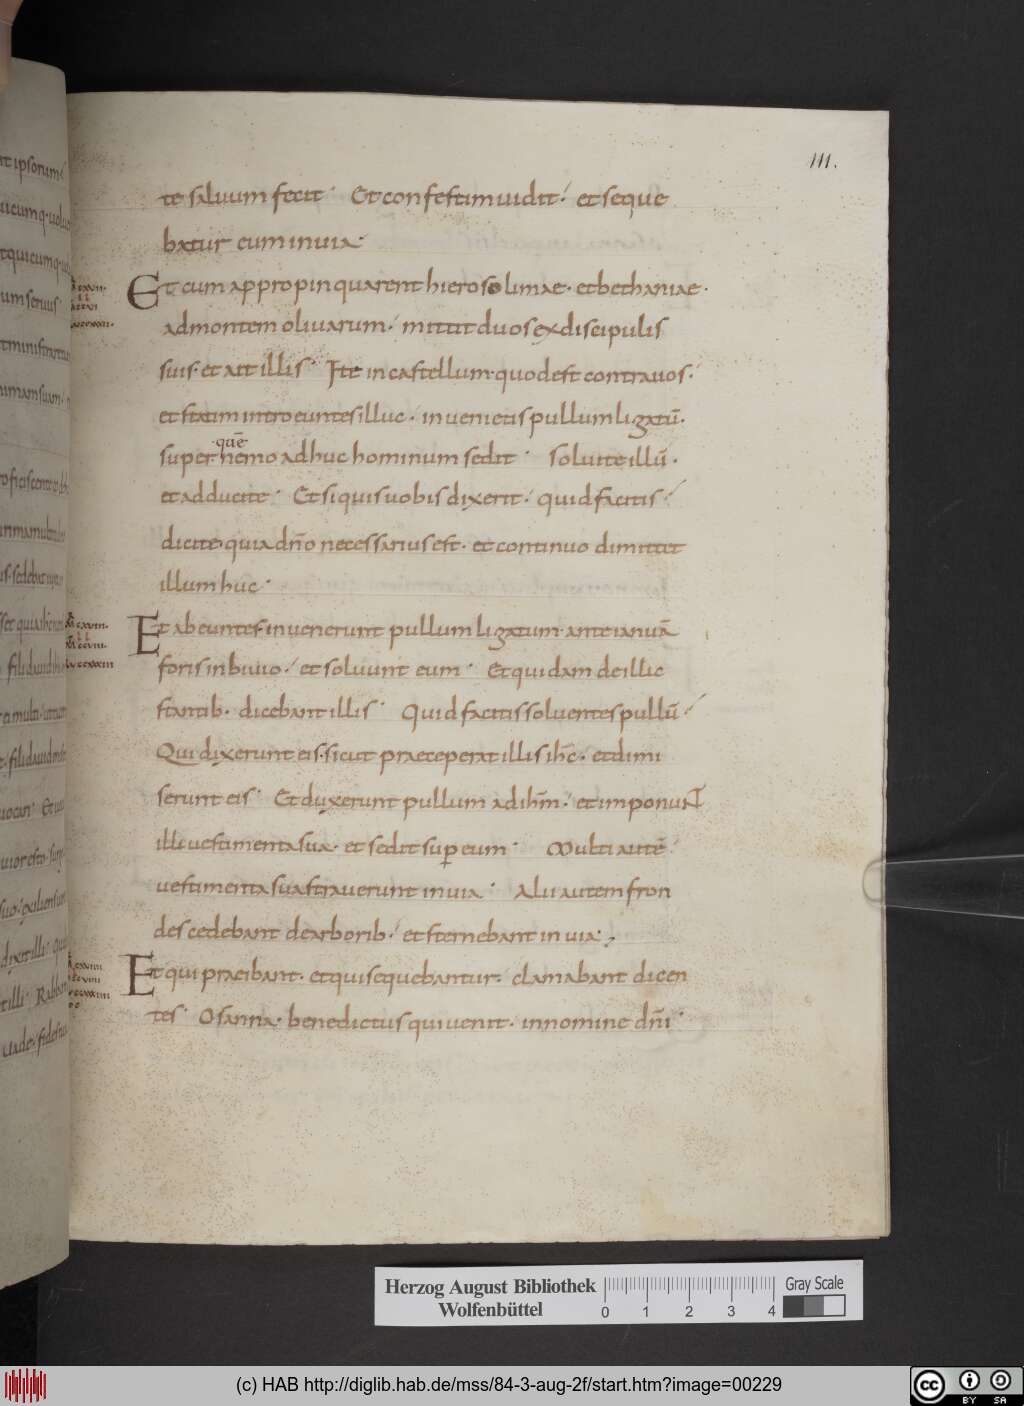 111.
te saluum fecit· Et confestim uidit·/ et seque
batur eum inuia·
Et cum appropinquarent hierosolimae· et bethaniae·
ad montem oliuarum·/ mittit duos ex discipulis
suis· et ait illis· Ite in castellum· quod est contra uos·/
et statim introeuntes illuc· inuenietis pullum ligatū·
·quē·
super nemo adhuc hominum sedit· soluite illū·
et adducite· Et si quis uobis dixerit· quid facitis·/
dicite· quia dño necessarius est· et continuo dimittit
illum huc·
Et abeuntes· inuenerunt pullum ligatum· ante ianuā
foris in biuio·/ et soluunt eum· Et quidam de illic
stantib· dicebant illis· Quid facitis soluentes pullū·/
Qui dixerunt eis· sicut praeceperat illis ihc̄· et dimi
serunt eis· Et duxerunt pullum ad ihm̄·/ et imponunt
illi uestimenta sua· et sedit sup̱ eum· Multi autē·
uestimenta sua strauerunt in uia· Alii autem fron
des cedebant de arborib·/ et sternebant in uia·,
Et qui praeibant· et qui sequebantur· clamabant dicen
tes· Osanna· benedictus qui uenit· in nomine dñi·
Herzog August Bibliothek
Wolfenbüttel
0 1 2 3 4
Gray Scale
(c) HAB http://diglib.hab.de/mss/84-3-aug-2f/start.htm?image=00229
cc BY SA